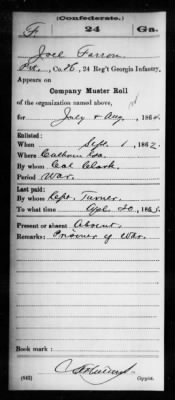 (Confederate.)
F. 24 Ga.
Joel Farron
Pvt., Co. , 24 Reg't Georgia Infantry.
Appears on
Company Muster Roll
of the organization named above,
for July & Aug, 1864.
Enlisted:
When Sept. 1, 1862.
Where Calhoun Ga.
By whom Col Clark.
Period War.
Last paid:
By whom Capt. Turner.
To what time Apl. 30, 186
Present or absent Absent.
Remarks: Prisoner of War.
Book mark:
(642) Copyist.